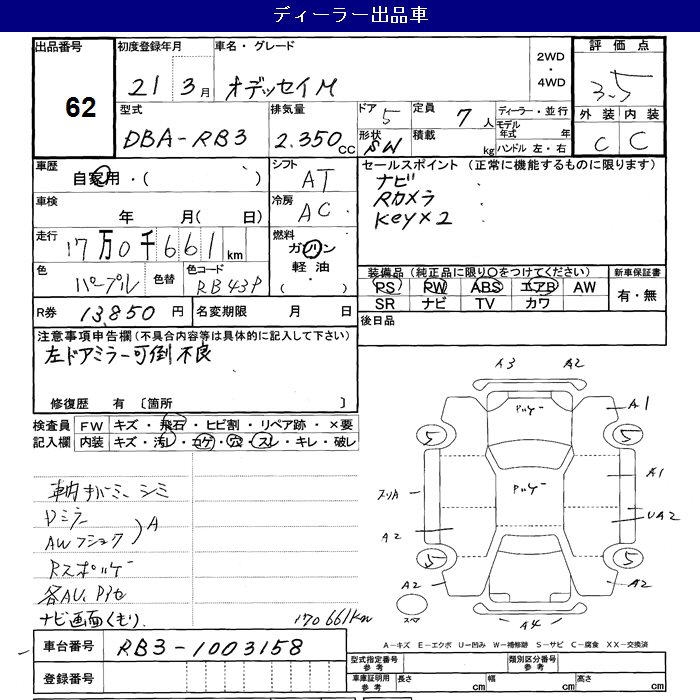 ディーラー出品車
出品番号 62
初度登録年月 21年 3月
車名・グレード オデッセイM
2WD・4WD
評価点 3.5
型式 DBA-RB3
排気量 2.350cc
ドア 5
形状 SW
定員 7人
積載 kg
ディーラー・並行
モデル年式 年
ハンドル 左・右
外装 C
内装 C
車歴 自家用・( )
シフト AT
セールスポイント(正常に機能するものに限ります)
ナビ
Rカメラ
Key×2
車検 年 月( 日)
冷房 AC
走行 17万0千661km
燃料 ガソリン・軽油・( )
色 パープル
色替
色コード RB43P
装備品(純正品に限り○をつけてください)
PS PW ABS エアB AW
SR ナビ TV カワ
新車保証書 有・無
R券 13,850円
名変期限 月 日
後日品
注意事項申告欄(不具合内容等は具体的に記入して下さい)
左ドアミラー可倒不良
修復歴 有 〔箇所 〕
検査員記入欄
FW キズ・飛石・ヒビ割・リペア跡・×要
内装 キズ・汚レ・コゲ・穴・スレ・キレ・破レ
Dミラー
A
ナビ画面くもり
170661km
A3 A2
A1
パッゲー
5 5
A1
パッゲー
スリA
UA2
A2
5 5
A2 A2
A4
車台番号 RB3-1003158
登録番号
A-キズ E-エクボ U-凹み W-補修跡 S-サビ C-腐食 XX-交換済
型式指定番号 参考
類別区分番号 参考
車庫証明用 参考 長さ cm 幅 cm 高さ cm